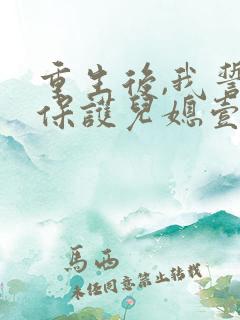 重生後,我誓
保護兒媳壹
馬西
未經同意禁止轉載